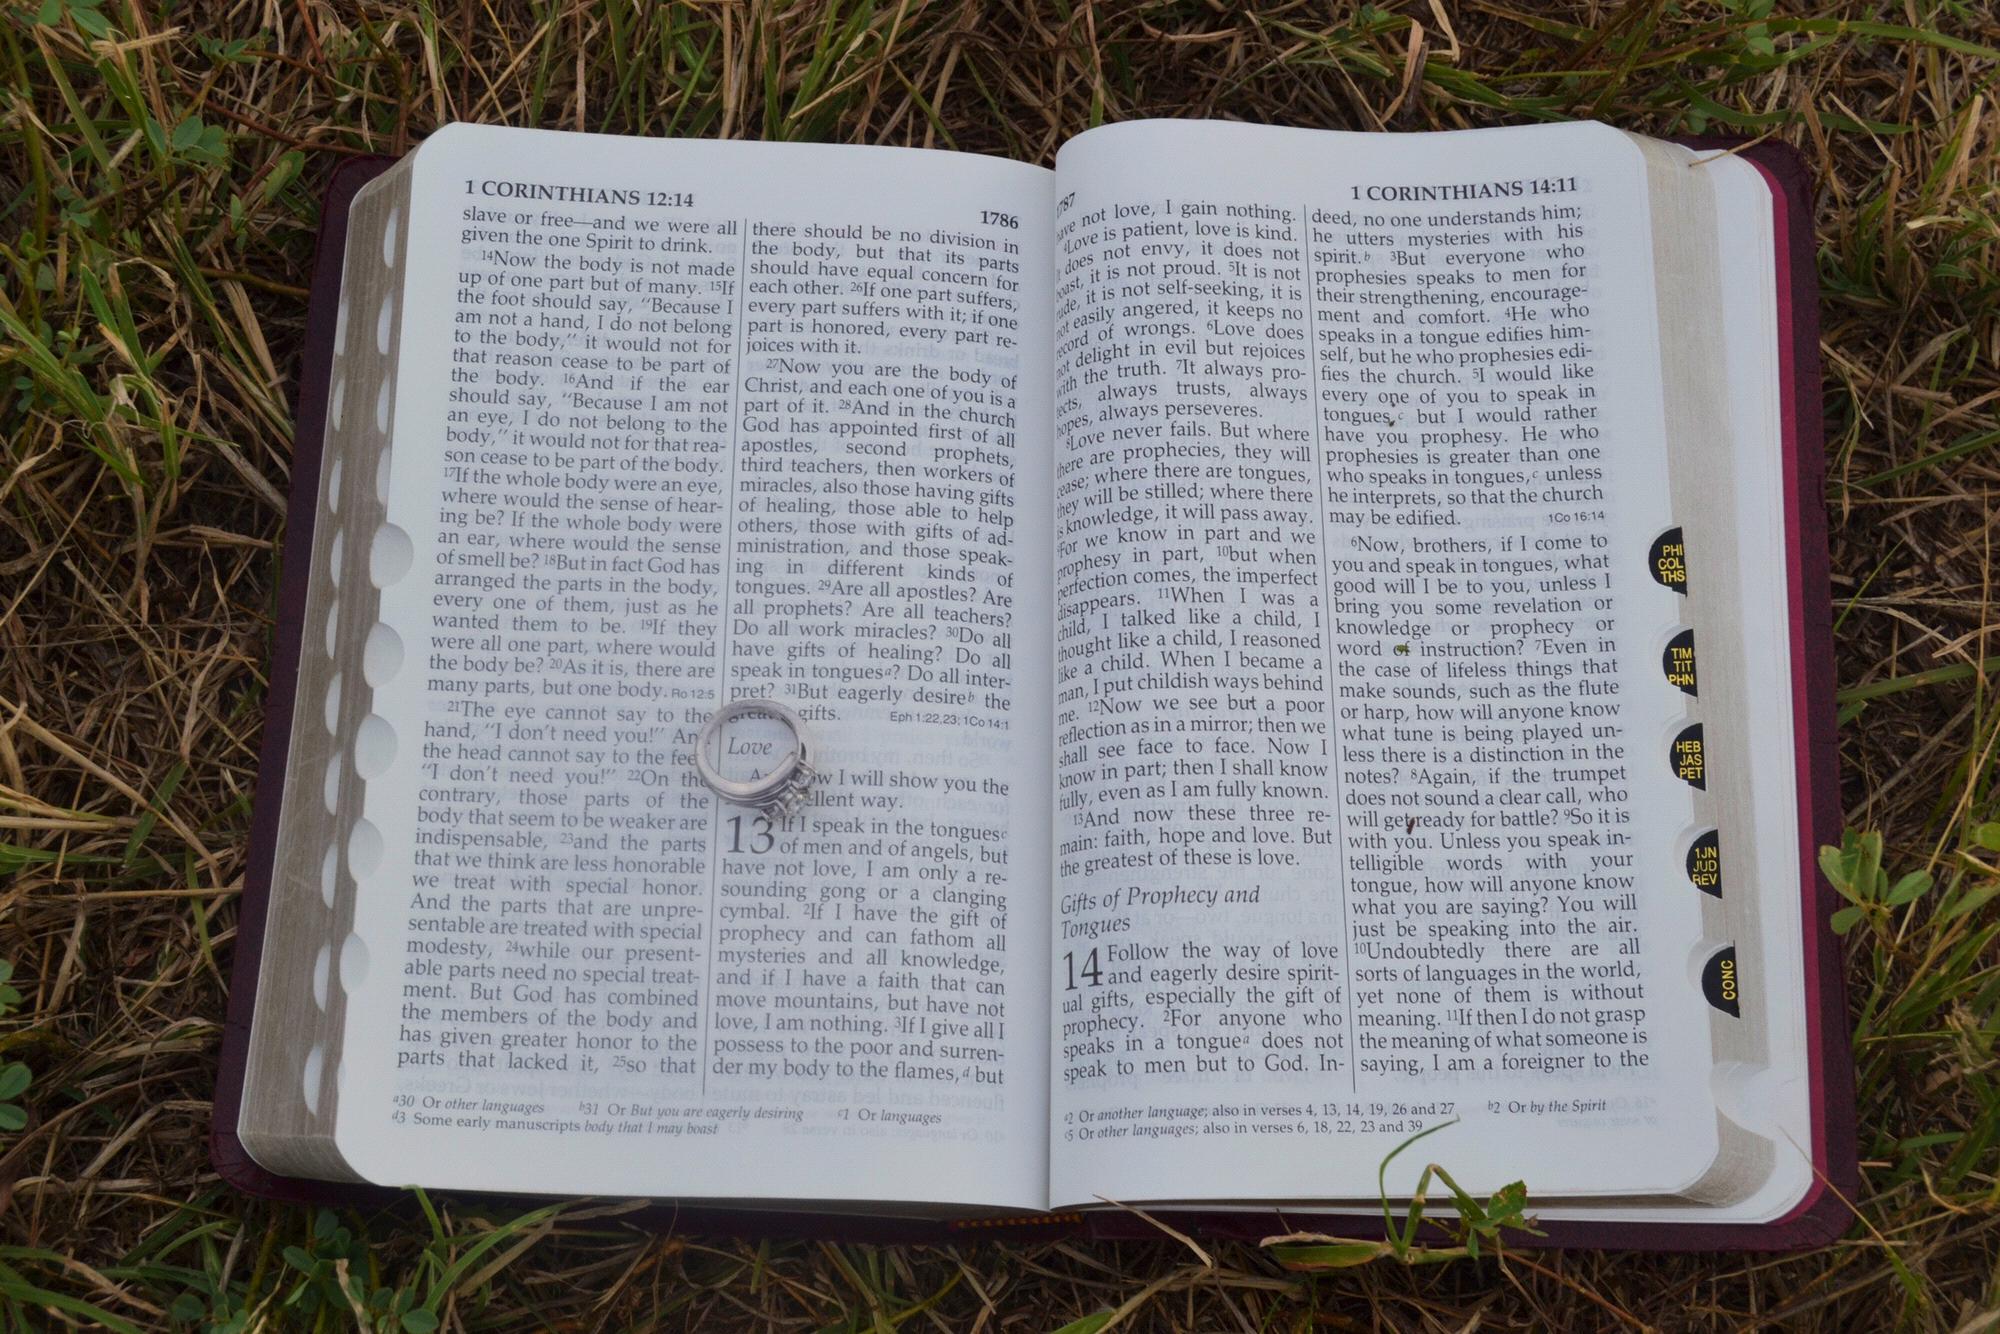 1 CORINTHIANS 12:14
1786
slave or free—and we were all
given the one Spirit to drink.
14Now the body is not made
up of one part but of many. 15If
the foot should say, “Because I
am not a hand, I do not belong
to the body,” it would not for
that reason cease to be part of
the body. 16And if the ear
should say, “Because I am not
an eye, I do not belong to the
body,” it would not for that rea-
son cease to be part of the body.
17If the whole body were an eye,
where would the sense of hear-
ing be? If the whole body were
an ear, where would the sense
of smell be? 18But in fact God has
arranged the parts in the body,
every one of them, just as he
wanted them to be. 19If they
were all one part, where would
the body be? 20As it is, there are
many parts, but one body. Ro 12:5
21The eye cannot say to the
hand, “I don’t need you!” And
the head cannot say to the feet
“I don’t need you!” 22On the
contrary, those parts of the
body that seem to be weaker are
indispensable, 23and the parts
that we think are less honorable
we treat with special honor.
And the parts that are unpre-
sentable are treated with special
modesty, 24while our present-
able parts need no special treat-
ment. But God has combined
the members of the body and
has given greater honor to the
parts that lacked it, 25so that
there should be no division in
the body, but that its parts
should have equal concern for
each other. 26If one part suffers,
every part suffers with it; if one
part is honored, every part re-
joices with it.
27Now you are the body of
Christ, and each one of you is a
part of it. 28And in the church
God has appointed first of all
apostles, second prophets,
third teachers, then workers of
miracles, also those having gifts
of healing, those able to help
others, those with gifts of ad-
ministration, and those speak-
ing in different kinds of
tongues. 29Are all apostles? Are
all prophets? Are all teachers?
Do all work miracles? 30Do all
have gifts of healing? Do all
speak in tonguesa? Do all inter-
pret? 31But eagerly desireb the
gifts. Eph 1:22,23; 1Co 14:1
Love
I will show you the
way.
13 If I speak in the tonguesc
of men and of angels, but
have not love, I am only a re-
sounding gong or a clanging
cymbal. 2If I have the gift of
prophecy and can fathom all
mysteries and all knowledge,
and if I have a faith that can
move mountains, but have not
love, I am nothing. 3If I give all I
possess to the poor and surren-
der my body to the flames,d but
a30 Or other languages b31 Or But you are eagerly desiring c1 Or languages
d3 Some early manuscripts body that I may boast
1787
1 CORINTHIANS 14:11
have not love, I gain nothing.
4Love is patient, love is kind.
It does not envy, it does not
boast, it is not proud. 5It is not
rude, it is not self-seeking, it is
not easily angered, it keeps no
record of wrongs. 6Love does
not delight in evil but rejoices
with the truth. 7It always pro-
tects, always trusts, always
hopes, always perseveres.
8Love never fails. But where
there are prophecies, they will
cease; where there are tongues,
they will be stilled; where there
is knowledge, it will pass away.
9For we know in part and we
prophesy in part, 10but when
perfection comes, the imperfect
disappears. 11When I was a
child, I talked like a child, I
thought like a child, I reasoned
like a child. When I became a
man, I put childish ways behind
me. 12Now we see but a poor
reflection as in a mirror; then we
shall see face to face. Now I
know in part; then I shall know
fully, even as I am fully known.
13And now these three re-
main: faith, hope and love. But
the greatest of these is love.
Gifts of Prophecy and
Tongues
14 Follow the way of love
and eagerly desire spirit-
ual gifts, especially the gift of
prophecy. 2For anyone who
speaks in a tonguea does not
speak to men but to God. In-
deed, no one understands him;
he utters mysteries with his
spirit.b 3But everyone who
prophesies speaks to men for
their strengthening, encourage-
ment and comfort. 4He who
speaks in a tongue edifies him-
self, but he who prophesies edi-
fies the church. 5I would like
every one of you to speak in
tongues,c but I would rather
have you prophesy. He who
prophesies is greater than one
who speaks in tongues,c unless
he interprets, so that the church
may be edified. 1Co 16:14
6Now, brothers, if I come to
you and speak in tongues, what
good will I be to you, unless I
bring you some revelation or
knowledge or prophecy or
word of instruction? 7Even in
the case of lifeless things that
make sounds, such as the flute
or harp, how will anyone know
what tune is being played un-
less there is a distinction in the
notes? 8Again, if the trumpet
does not sound a clear call, who
will get ready for battle? 9So it is
with you. Unless you speak in-
telligible words with your
tongue, how will anyone know
what you are saying? You will
just be speaking into the air.
10Undoubtedly there are all
sorts of languages in the world,
yet none of them is without
meaning. 11If then I do not grasp
the meaning of what someone is
saying, I am a foreigner to the
a2 Or another language; also in verses 4, 13, 14, 19, 26 and 27 b2 Or by the Spirit
c5 Or other languages; also in verses 6, 18, 22, 23 and 39
PHI
COL
THS
TIM
TIT
PHN
HEB
JAS
PET
1JN
JUD
REV
CONC